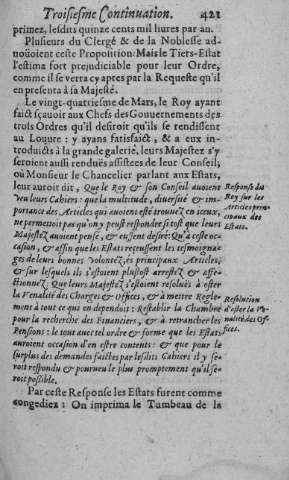 Troisiesme Continuation. 421
primez, lesdits quinze cents mil liures par an.
Plusieurs du Clergé & de la Noblesse ad-
uoüoient ceste Proposition: Mais le Tiers-Estat
l'estima fort prejudiciable pour leur Ordre,
comme il se verra cy apres par la Requeste qu'il
en presenta à sa Majesté.
Le vingt-quatriesme de Mars, le Roy ayant
faict sçauoir aux Chefs des Gouuernements des
trois Ordres qu'il desiroit qu'ils se rendissent
au Louure: y ayans satisfaict, & a eux in-
troduicts à la grande galerie, leurs Majestez s'y
seroient aussi renduës assistees de leur Conseil,
où Monsieur le Chancelier parlant aux Estats,
leur auroit dit, Que le Roy & son Conseil auoient
veu leurs Cahiers: que la multitude, diuersité & im-
portance des Articles qui auoient esté trouuez en iceux,
ne permettoit pas qu'on y peust respondre si tost que leurs
Majestez auoient pensé, & eussent desiré: Qu'à ceste oc-
casion, & affin que les Estats reçeussent les tesmoigna-
ges de leurs bonnes volontez, és principaux Articles,
& sur lesquels ils s'estoient plustost arrestez & affe-
ctionnez: Que leurs Majestez s'estoient resolües à oster
la Venalité des Charges & Offices, & à mettre Regle-
ment à tout ce qui en dependoit: Restablir la Chambre
pour la recherche des Financiers, & à retrancher les
Pensions: le tout auec tel ordre & forme que les Estats
auroient occasion d'en estre contents: & que pour le
surplus des demandes faictes par lesdits Cahiers il y se-
roit respondu & pourueu le plus promptement qu'il se-
roit possible.
Par ceste Response les Estats furent comme
congediez: On imprima le Tumbeau de la
Response du
Roy sur les
Articles prin-
cipaux des
Estats.
Resolution
d'oster la Ve-
nalité des Of-
fices.